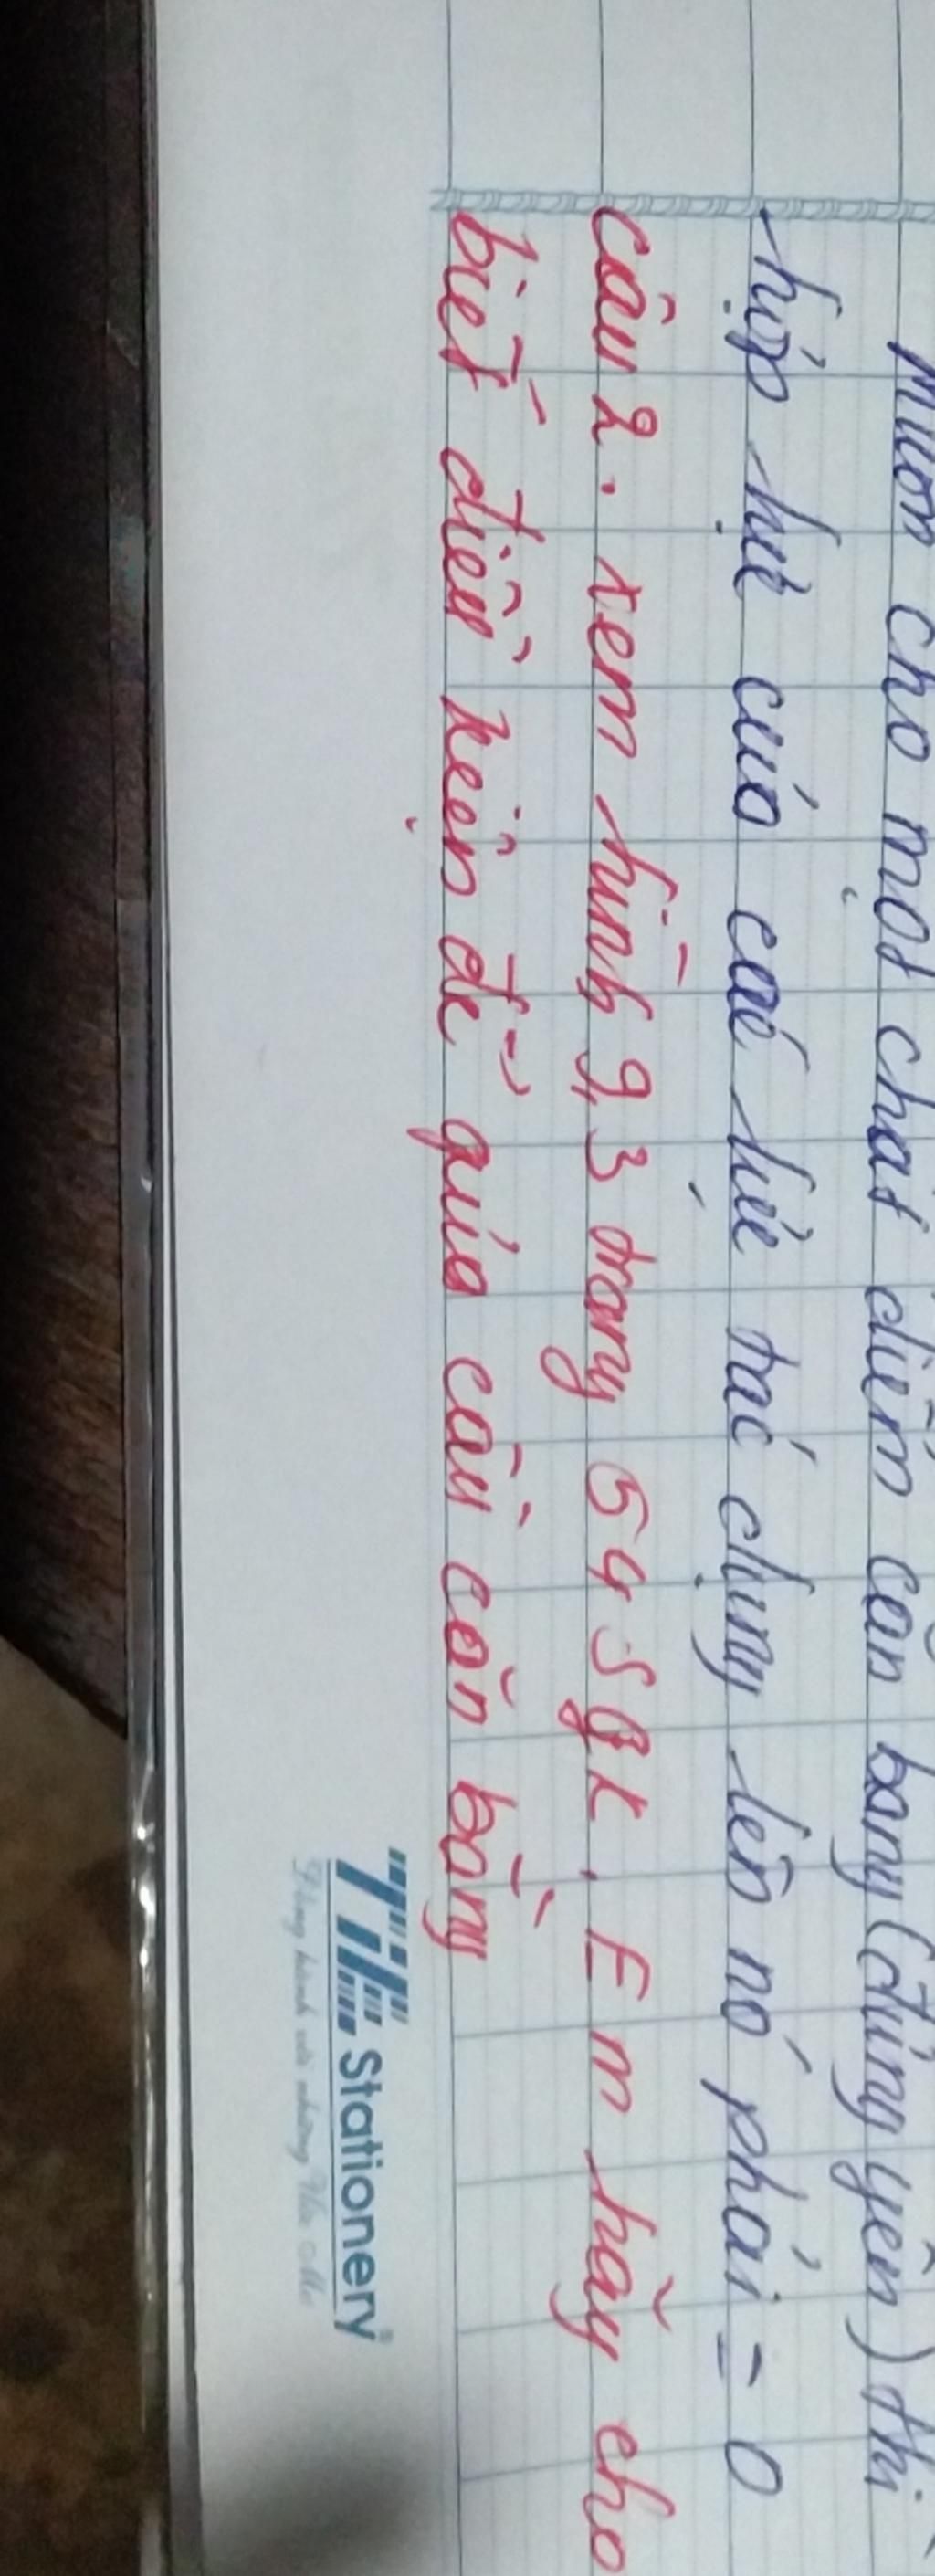 muốn cho một chất điểm cân bằng (đứng yên) thì
hợp lực của các lực tác dụng lên nó phải = 0
câu 2. xem hình 9,3 trang 54 sgk. Em hãy cho
biết điều kiện để quả cầu cân bằng
TiE Stationery